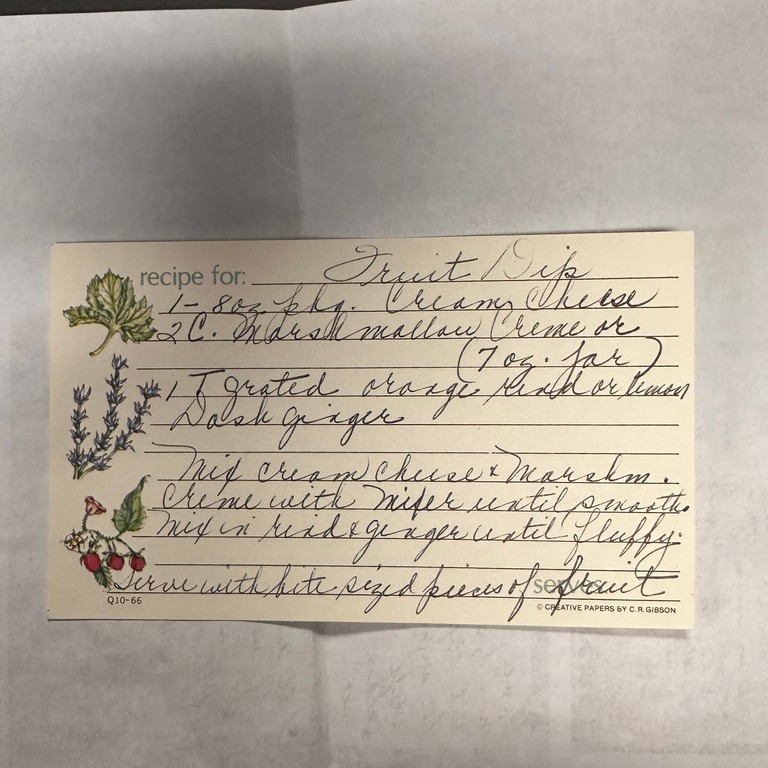 recipe for: Fruit Dip
1- 8oz pkg. Cream Cheese
2 C. Marshmallow Creme or
(7 oz. jar)
1 T grated orange rind or lemon
Dash ginger
Mix cream cheese & Marshm.
Creme with mixer until smooth.
Mix in rind & ginger until fluffy.
Serve with bite sized pieces of fruit
serves
Q10-66
© CREATIVE PAPERS BY C.R. GIBSON